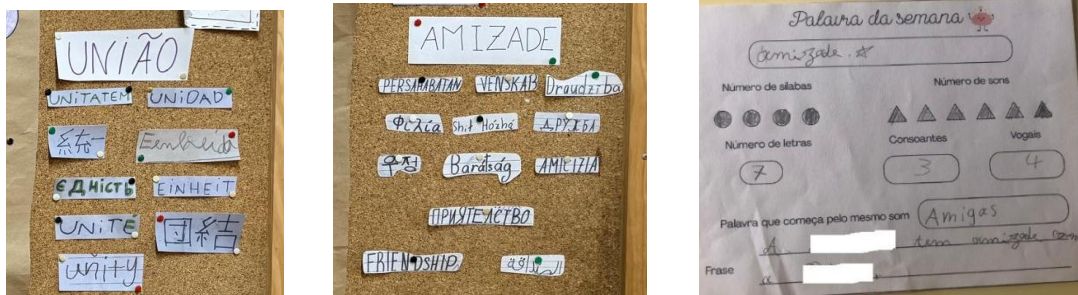 UNIÃO
UNITATEM UNIDAD
統一
ЄДНІСТЬ EINHEIT
UNITÉ 団結
unity
AMIZADE
PERSAHABATAN VENSKAB Draudzība
Φιλία ДРУЖБА
우정 Barátság AMICIZIA
ПРИЯТЕЛСТВО
FRIENDSHIP
Palavra da semana
amizade.
Número de sílabas Número de sons
Número de letras Consoantes Vogais
7 3 4
Palavra que começa pelo mesmo som Amigas
A tem amizade com
Frase a